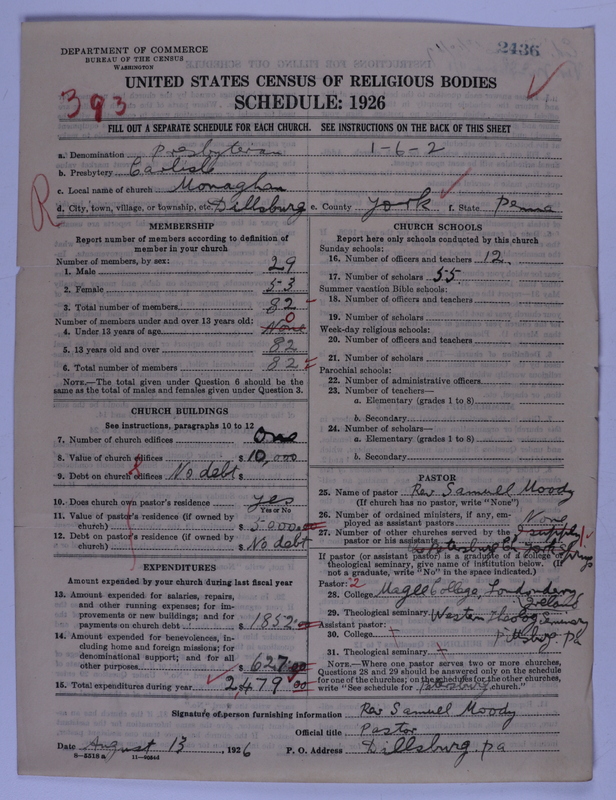 DEPARTMENT OF COMMERCE
BUREAU OF THE CENSUS
WASHINGTON
2436
UNITED STATES CENSUS OF RELIGIOUS BODIES
SCHEDULE: 1926
393
FILL OUT A SEPARATE SCHEDULE FOR EACH CHURCH. SEE INSTRUCTIONS ON THE BACK OF THIS SHEET
a. Denomination Presbyterian 1-6-2
b. Presbytery Carlisle
c. Local name of church Monaghan
R
d. City, town, village, or township, etc. Dillsburg e. County York f. State Penna
MEMBERSHIP
Report number of members according to definition of
member in your church
Number of members, by sex:
1. Male 29
2. Female 53
3. Total number of members 82
Number of members under and over 13 years old: 0
4. Under 13 years of age None
5. 13 years old and over 82
6. Total number of members 82
NOTE.—The total given under Question 6 should be the
same as the total of males and females given under Question 3.
CHURCH BUILDINGS
See instructions, paragraphs 10 to 12
7. Number of church edifices One
8. Value of church edifices $ 10,000
9. Debt on church edifices No debt $
10. Does church own pastor's residence yes
Yes or No
11. Value of pastor's residence (if owned by
church) $ 5000.00
12. Debt on pastor's residence (if owned by
church) $ No debt
EXPENDITURES
Amount expended by your church during last fiscal year
13. Amount expended for salaries, repairs,
and other running expenses; for im-
provements or new buildings; and for
payments on church debt $ 1852.00
14. Amount expended for benevolences, in-
cluding home and foreign missions; for
denominational support; and for all
other purposes $ 627.00
15. Total expenditures during year 2,479 00
CHURCH SCHOOLS
Report here only schools conducted by this church
Sunday schools:
16. Number of officers and teachers 12
17. Number of scholars 55
Summer vacation Bible schools:
18. Number of officers and teachers
19. Number of scholars
Week-day religious schools:
20. Number of officers and teachers
21. Number of scholars
Parochial schools:
22. Number of administrative officers
23. Number of teachers—
a. Elementary (grades 1 to 8)
b. Secondary
24. Number of scholars—
a. Elementary (grades 1 to 8)
b. Secondary
PASTOR
25. Name of pastor Rev Samuel Moody
(If church has no pastor, write "None")
26. Number of ordained ministers, if any, em-
ployed as assistant pastors None
27. Number of other churches served by the I supply
pastor or his assistants Petersburg Ch York Springs
If pastor (or assistant pastor) is a graduate of a college or
theological seminary, give name of institution below. (If
not a graduate, write "No" in the space indicated.)
Pastor: 2
28. College Magee College, Londonderry
Ireland
29. Theological seminary Western Theolog Seminary
Assistant pastor: Pittsburg Pa
30. College
31. Theological seminary
NOTE.—Where one pastor serves two or more churches,
Questions 28 and 29 should be answered only on the schedule
for one of the churches; on the schedules for the other churches,
write "See schedule for Petersburg church."
Signature of person furnishing information Rev Samuel Moody
Official title Pastor
Date August 13, 1926 P. O. Address Dillsburg Pa
8-5318 a 11-9034d